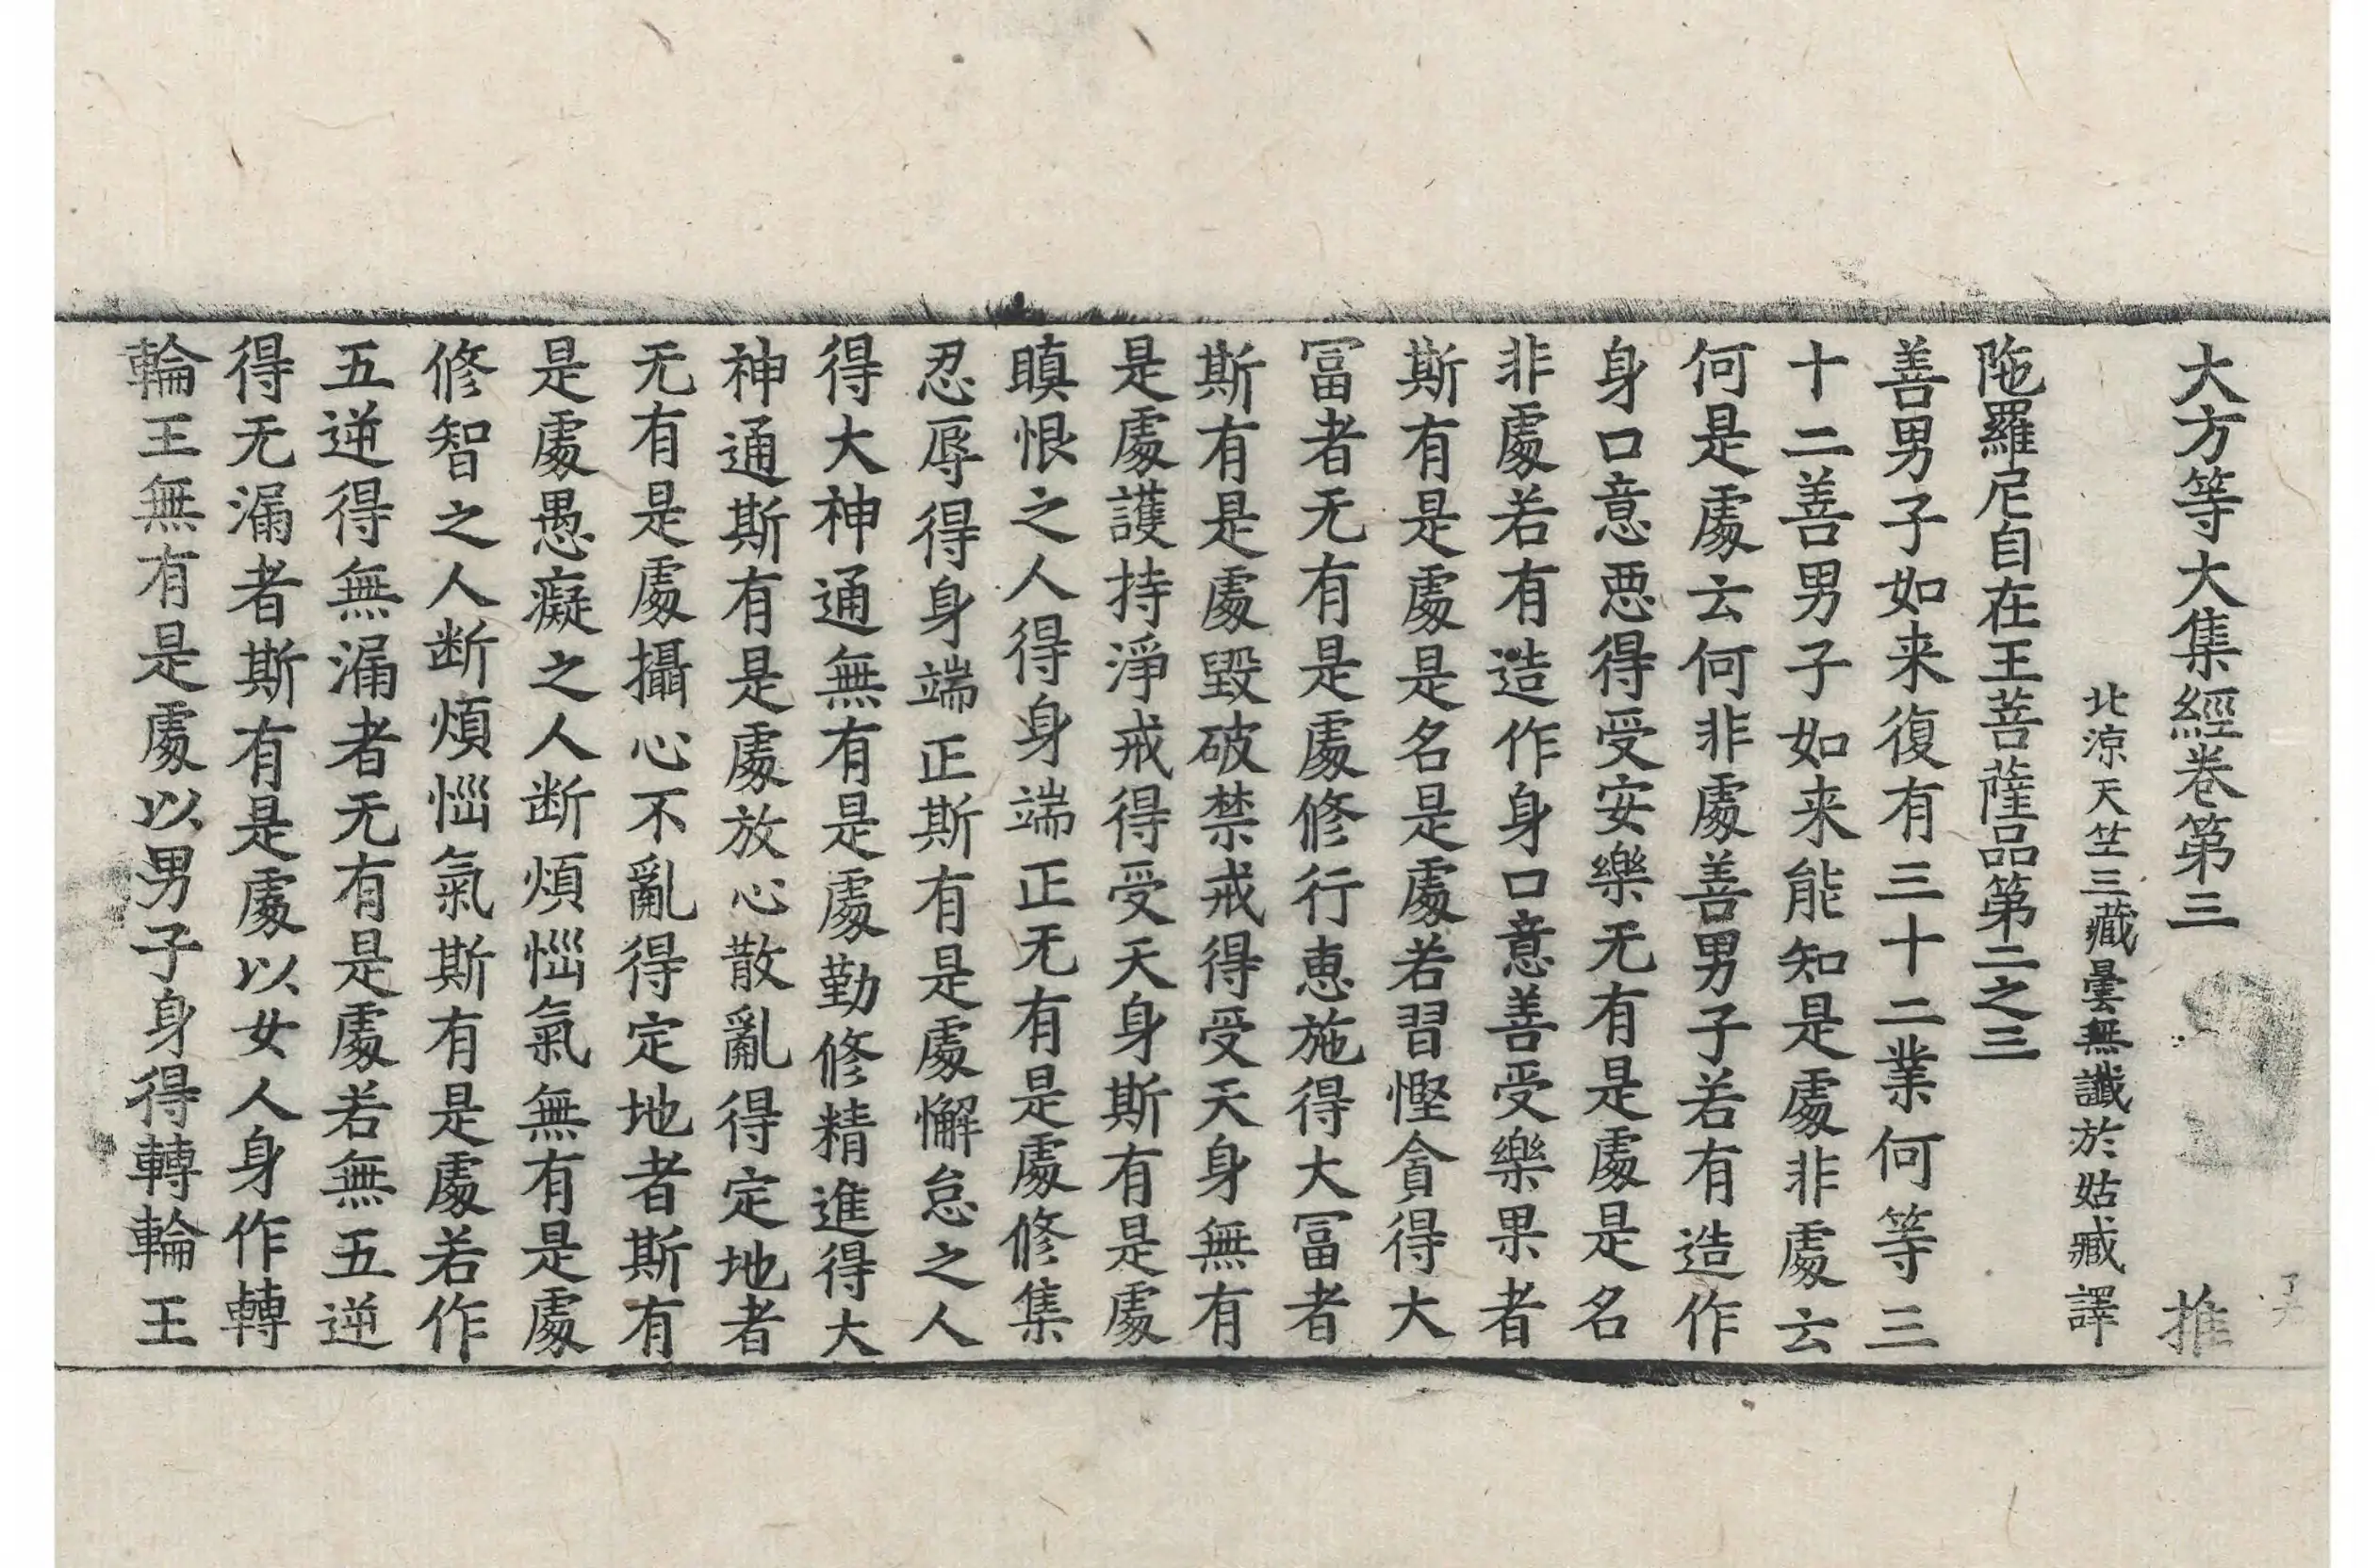 大方等大集經卷第三 推
北涼天竺三藏曇無讖於姑臧譯
陁羅尼自在王菩薩品第二之三
善男子如来復有三十二業何等三
十二善男子如来能知是處非處云
何是處云何非處善男子若有造作
身口意惡得受安樂无有是處是名
非處若有造作身口意善受樂果者
斯有是處是名是處若習慳貪得大
冨者无有是處修行恵施得大冨者
斯有是處毀破禁戒得受天身無有
是處護持淨戒得受天身斯有是處
瞋恨之人得身端正无有是處修集
忍辱得身端正斯有是處懈怠之人
得大神通無有是處勤修精進得大
神通斯有是處放心散亂得定地者
无有是處攝心不亂得定地者斯有
是處愚癡之人断煩惱氣無有是處
修智之人断煩惱氣斯有是處若作
五逆得無漏者无有是處若無五逆
得无漏者斯有是處以女人身作轉
輪王無有是處以男子身得轉輪王